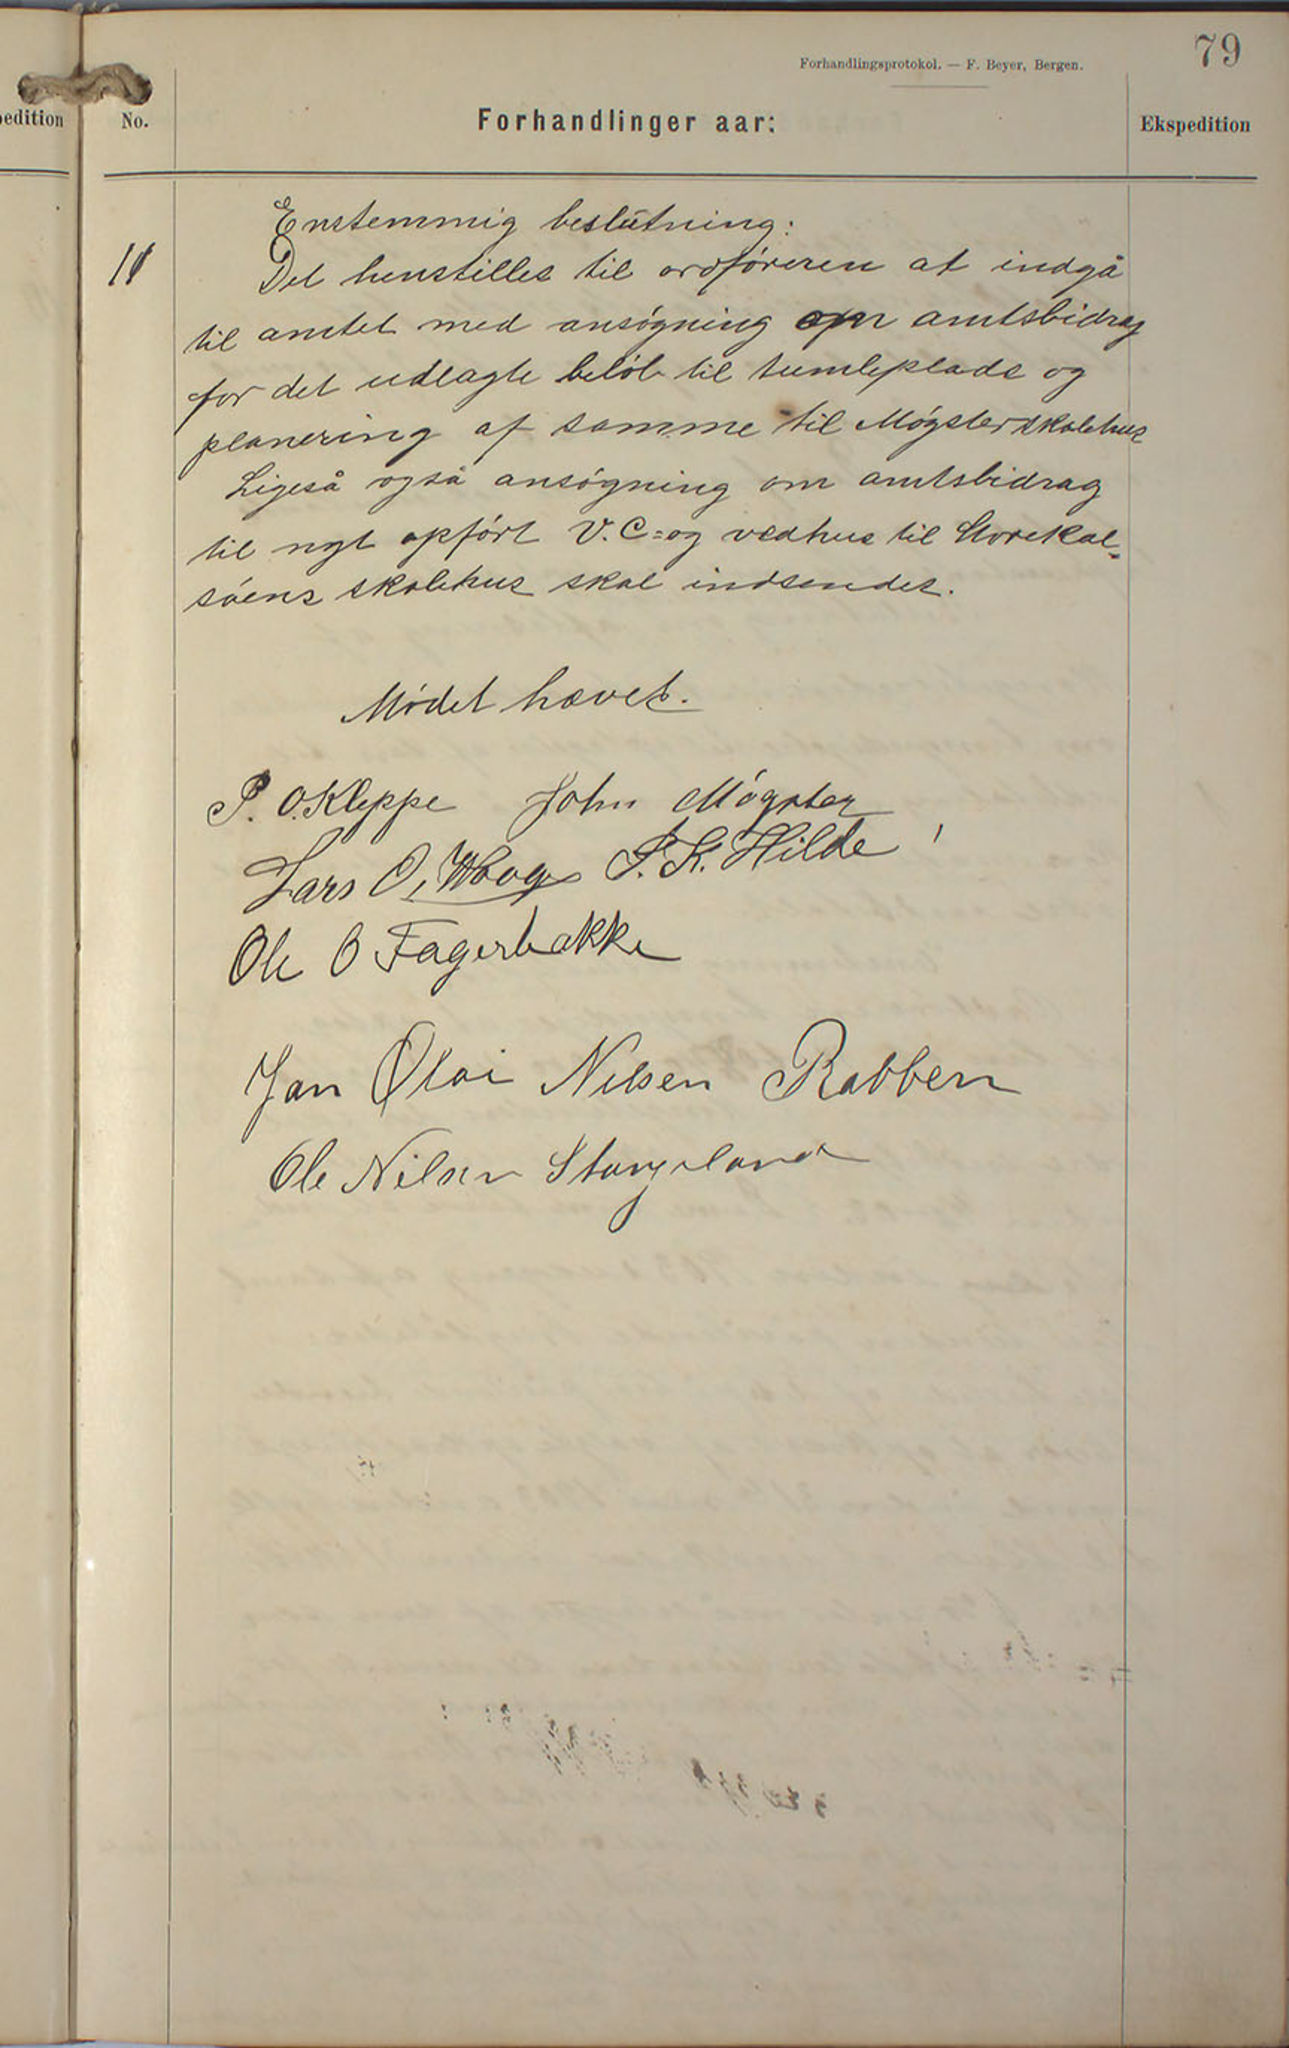 79
Forhandlingsprotokol. — F. Beyer, Bergen.
edition No. Forhandlinger aar: Ekspedition
Enstemmig beslutning:
11 Det henstilles til ordføreren at indgå
til amtet med ansøgning om amtsbidrag
for det udlagte beløb til tumleplads og
planering af samme til Møgster skolehus
Ligeså også ansøgning om amtsbidrag
til nyt opført V.C= og vedhus til Storekal=
søens skolehus skal indsendes.
Mødet hævet.
P. O. Kleppe John Møgster
Lars O. S. K. Hilde
Ole O Fagerbakke
Jan Olai Nilsen Rabben
Ole Nilsen Stangeland